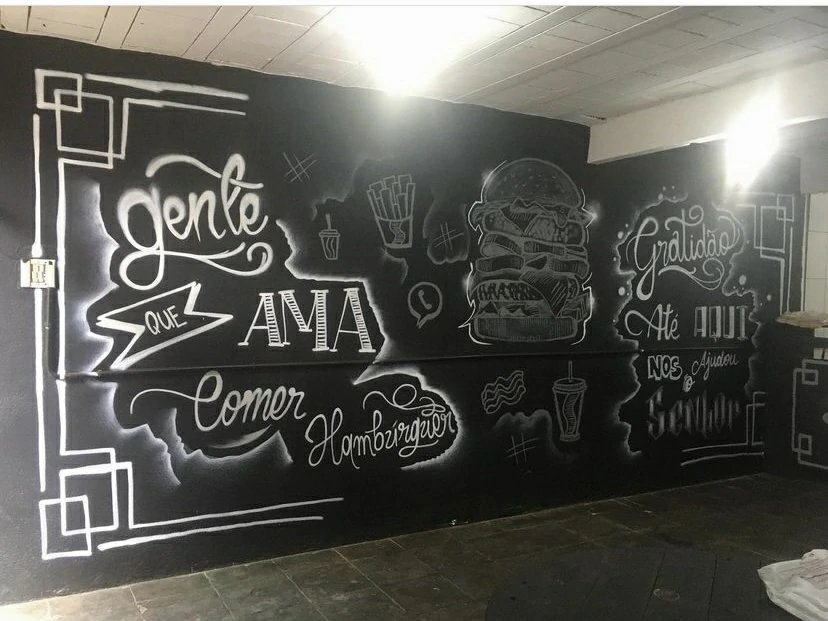 gente
QUE AMA
Comer
Hamburguer
Gratidão
Até AQUI
NOS Ajudou
o
Senhor